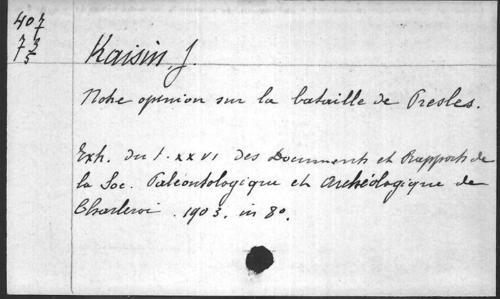 407
7 3
7 5
Kaisin, J.
Notre opinion sur la bataille de Presles.
Ext. du t. XXVI des Documents et Rapports de
la Soc. Paléontologique et Archéologique de
Charleroi. 1903. in 8o.